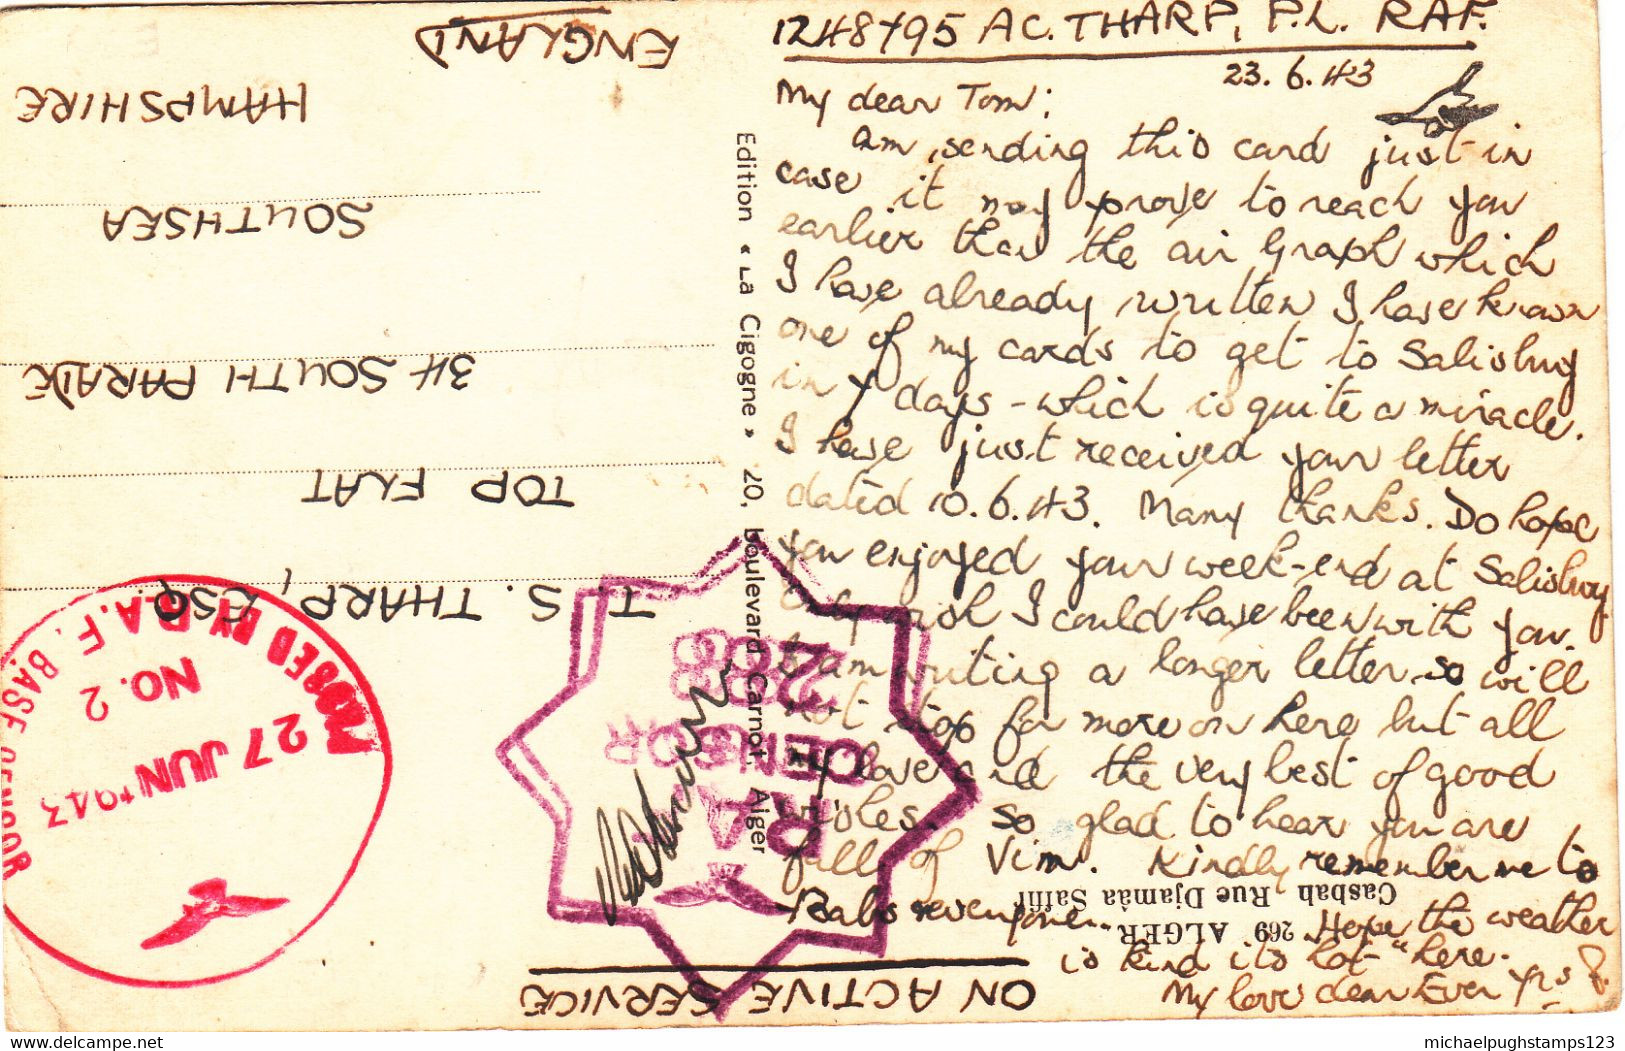 1248795 AC. THARP, P.L. RAF.
23.6.43
My dear Tom;
Am sending this card just in
case it may prove to reach you
earlier than the air Graph which
I have already written I have known
one of my cards to get to Salisbury
in 7 days - which is quite a miracle.
I have just received your letter
dated 10.6.43. Many thanks. Do hope
you enjoyed your week-end at Salisbury.
Only wish I could have been with you.
I am writing a longer letter, so will
not stop for more on here but all
my love and the very best of good
wishes. So glad to hear you are
full of Vim. Kindly remember me to
Hope the weather
is kind its "hot" here.
My love dear Ever Yrs P.
ON ACTIVE SERVICE
T. S. THARP, ESQ
TOP FLAT
34 SOUTH PARADE
SOUTHSEA
HAMPSHIRE
ENGLAND
Edition « La Cigogne » 20, boulevard Carnot, Alger
269 ALGER
Casbah Rue Djamâa Safir
R.A.F.
CENSOR
R.A.F. BASE CENSOR
NO. 2
27 JUN 1943
michaelpughstamps123